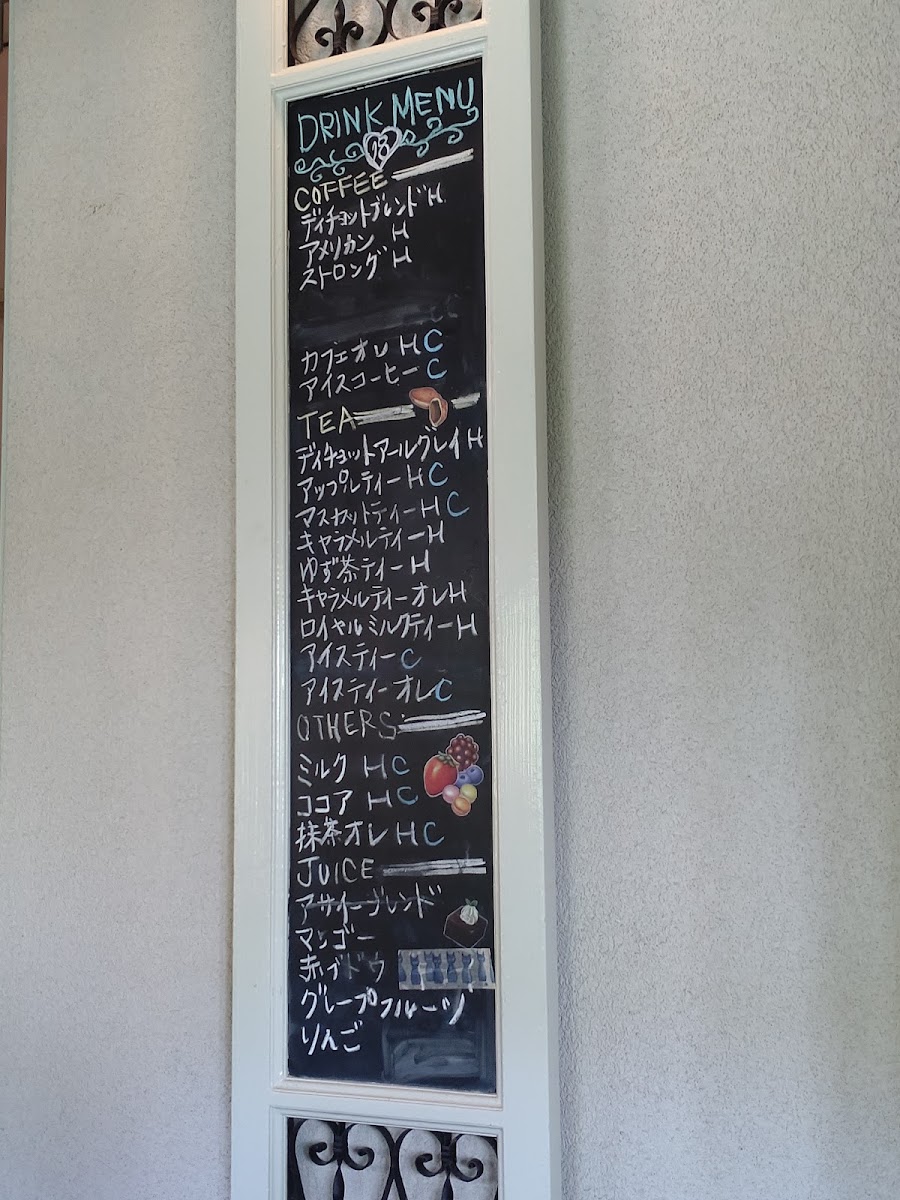 DRINK MENU
18
COFFEE
ディチョットブレンド H
アメリカン H
ストロング H
カフェオレ H C
アイスコーヒー C
TEA
ディチョットアールグレイ H
アップルティー H C
マスカットティー H C
キャラメルティー H
ゆず茶ティー H
キャラメルティーオレ H
ロイヤルミルクティー H
アイスティー C
アイスティーオレ C
OTHERS
ミルク H C
ココア H C
抹茶オレ H C
JUICE
アサイーブレンド
マンゴー
赤ブドウ
グレープフルーツ
りんご